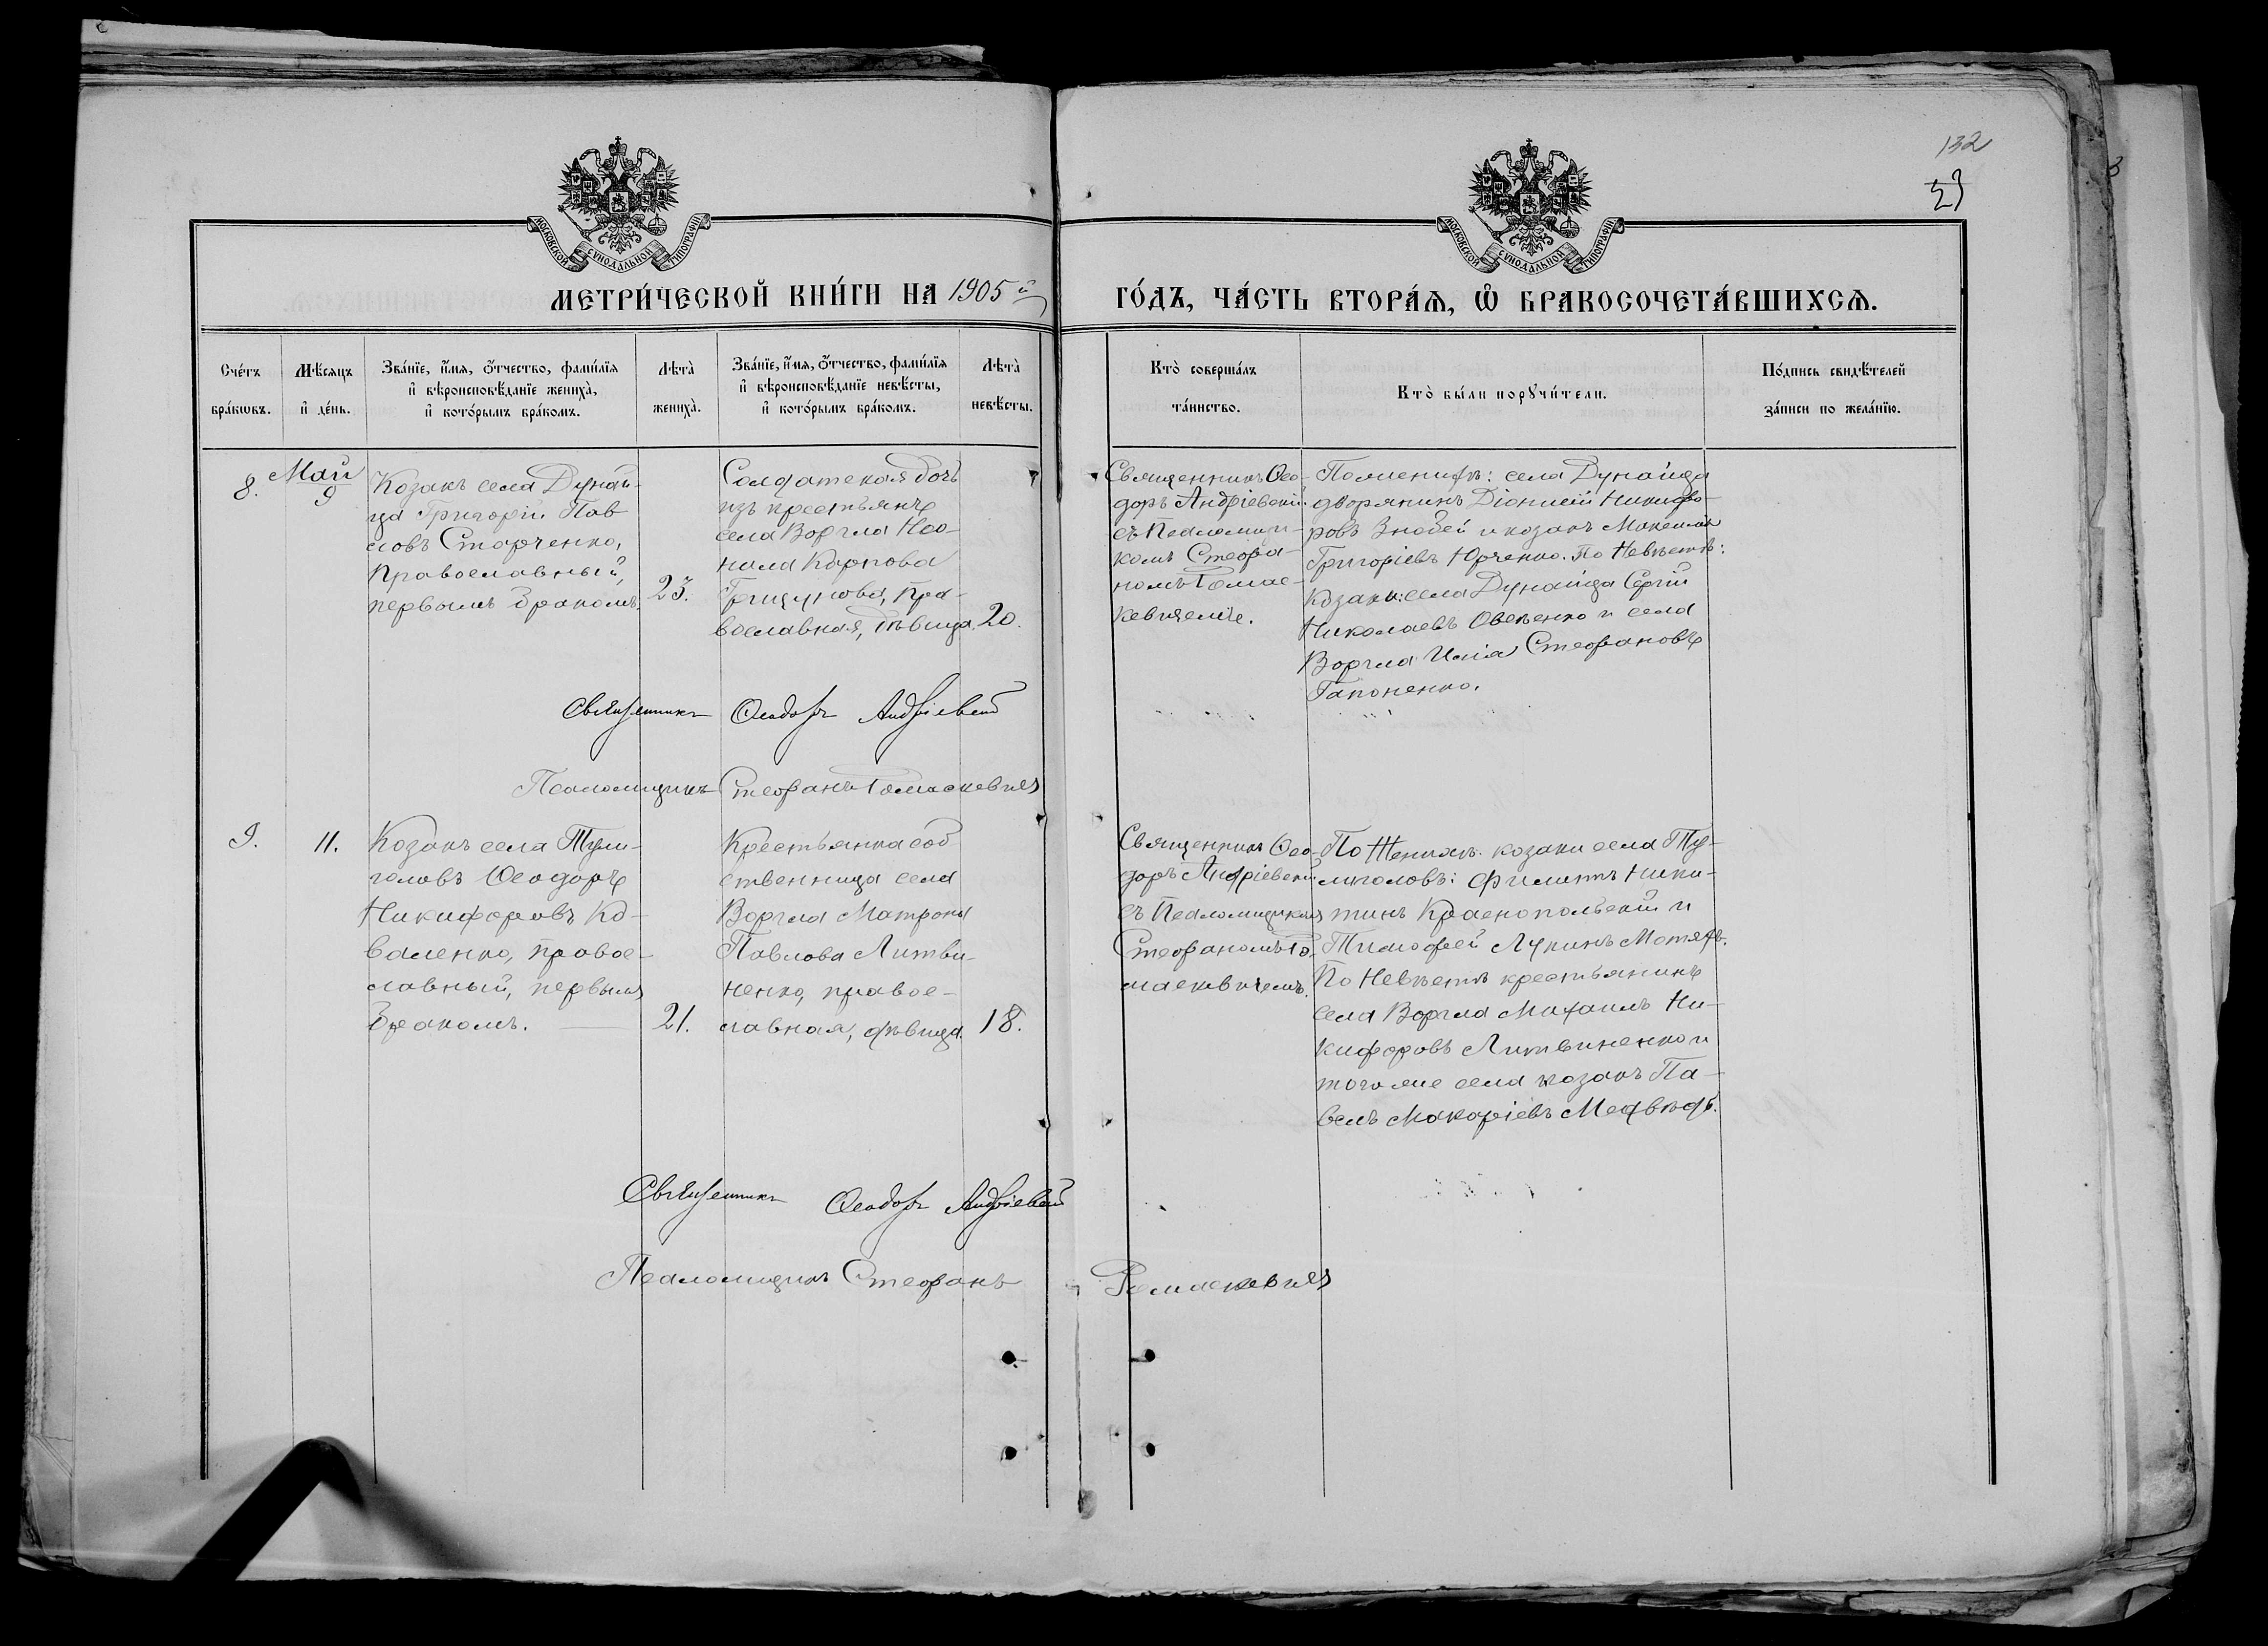 132
23
МОСКОВСКОЙ СУНОДАЛЬНОЙ ТИПОГРАФІИ
МОСКОВСКОЙ СУНОДАЛЬНОЙ ТИПОГРАФІИ
МЕТРИ́ЧЕСКОЙ КНИ́ГИ НА 1905й
ГО́ДЪ, ЧА́СТЬ ВТОРА́Я, Ѽ БРАКОСОЧЕТА́ВШИХСЯ.
Сче́тъ
бра́кѡвъ.
Мѣ́сяцъ
и҆ де́нь.
Зва́нїе, и҆́мя, ѻ҆́тчество, фами́лїя
и҆ вѣроисповѣ́данїе жениха̀,
и҆ кото́рымъ бра́комъ.
Лѣта̀
жениха̀.
Зва́нїе, и҆́мя, ѻ҆́тчество, фами́лїя
и҆ вѣроисповѣ́данїе невѣ́сты,
и҆ кото́рымъ бра́комъ.
Лѣта̀
невѣ́сты.
Кто̀ соверша́лъ
та́инство.
Кто̀ бы́ли порꙋчи́тели.
По́дпись свидѣ́телей
за́писи по жела́нїю.
8.
Май
9
Козакъ села Дунай-
ца Григорій Пав
ловъ Старченко,
православный,
первымъ бракомъ.
23.
Солдатская дочь
изъ крестьянъ
села Воргла Нео-
нила Карпова
Грицунова, пра-
вославная, дѣвица.
20.
Священникъ Ѳео-
доръ Андріевскій
съ Псаломщи-
комъ Стефа-
номъ Томас-
кевичемъ.
По женихѣ: села Дунайца
дворянинъ Діонисій Никифо-
ровъ Знобей и козакъ
Григоріевъ Юрченко. По Невѣстѣ:
козаки: села Дунайца Сергій
Николаевъ Овсѣенко и села
Воргла Илія Стефановъ
Гапоненко.
Священникъ Ѳеодоръ Андріевскій
Псаломщикъ Стефанъ Томаскевичъ
9.
11.
Козакъ села Тули-
головъ Ѳеодоръ
Никифоровъ Ко-
валенко, правос-
лавный, первымъ
бракомъ.
21.
Крестьянка соб
ственница села
Воргла Матрона
Павлова Литви-
ненко, правос-
лавная, дѣвица.
18.
Священникъ Ѳео-
доръ Андріевскій
съ Псаломщикомъ
Стефаномъ То-
маскевичемъ.
По Женихѣ: козаки села Ту-
лиголовъ: Филиппъ Ники-
тинъ Краснопольскій и
Тимофей Лукинъ
По Невѣстѣ крестьянинъ
села Воргла Михаилъ Ни-
кифоровъ Литвиненко и
того же села козакъ Па-
велъ Макаріевъ Медвѣдь.
Священникъ Ѳеодоръ Андріевскій
Псаломщикъ Стефанъ Томаскевичъ